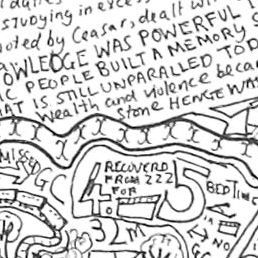 studying in exces
oted by Ceasar, dealt wi
OWLEDGE WAS POWERFUL
IC PEOPLE BUILT A MEMORY
AT IS STILL UNPARALLED TOD
Wealth and violence becam
Stone HENGE WAS
MISSED
GC
4.0
RECOVERD
FROM 222
FOR
5
BED TIME
32M
NO